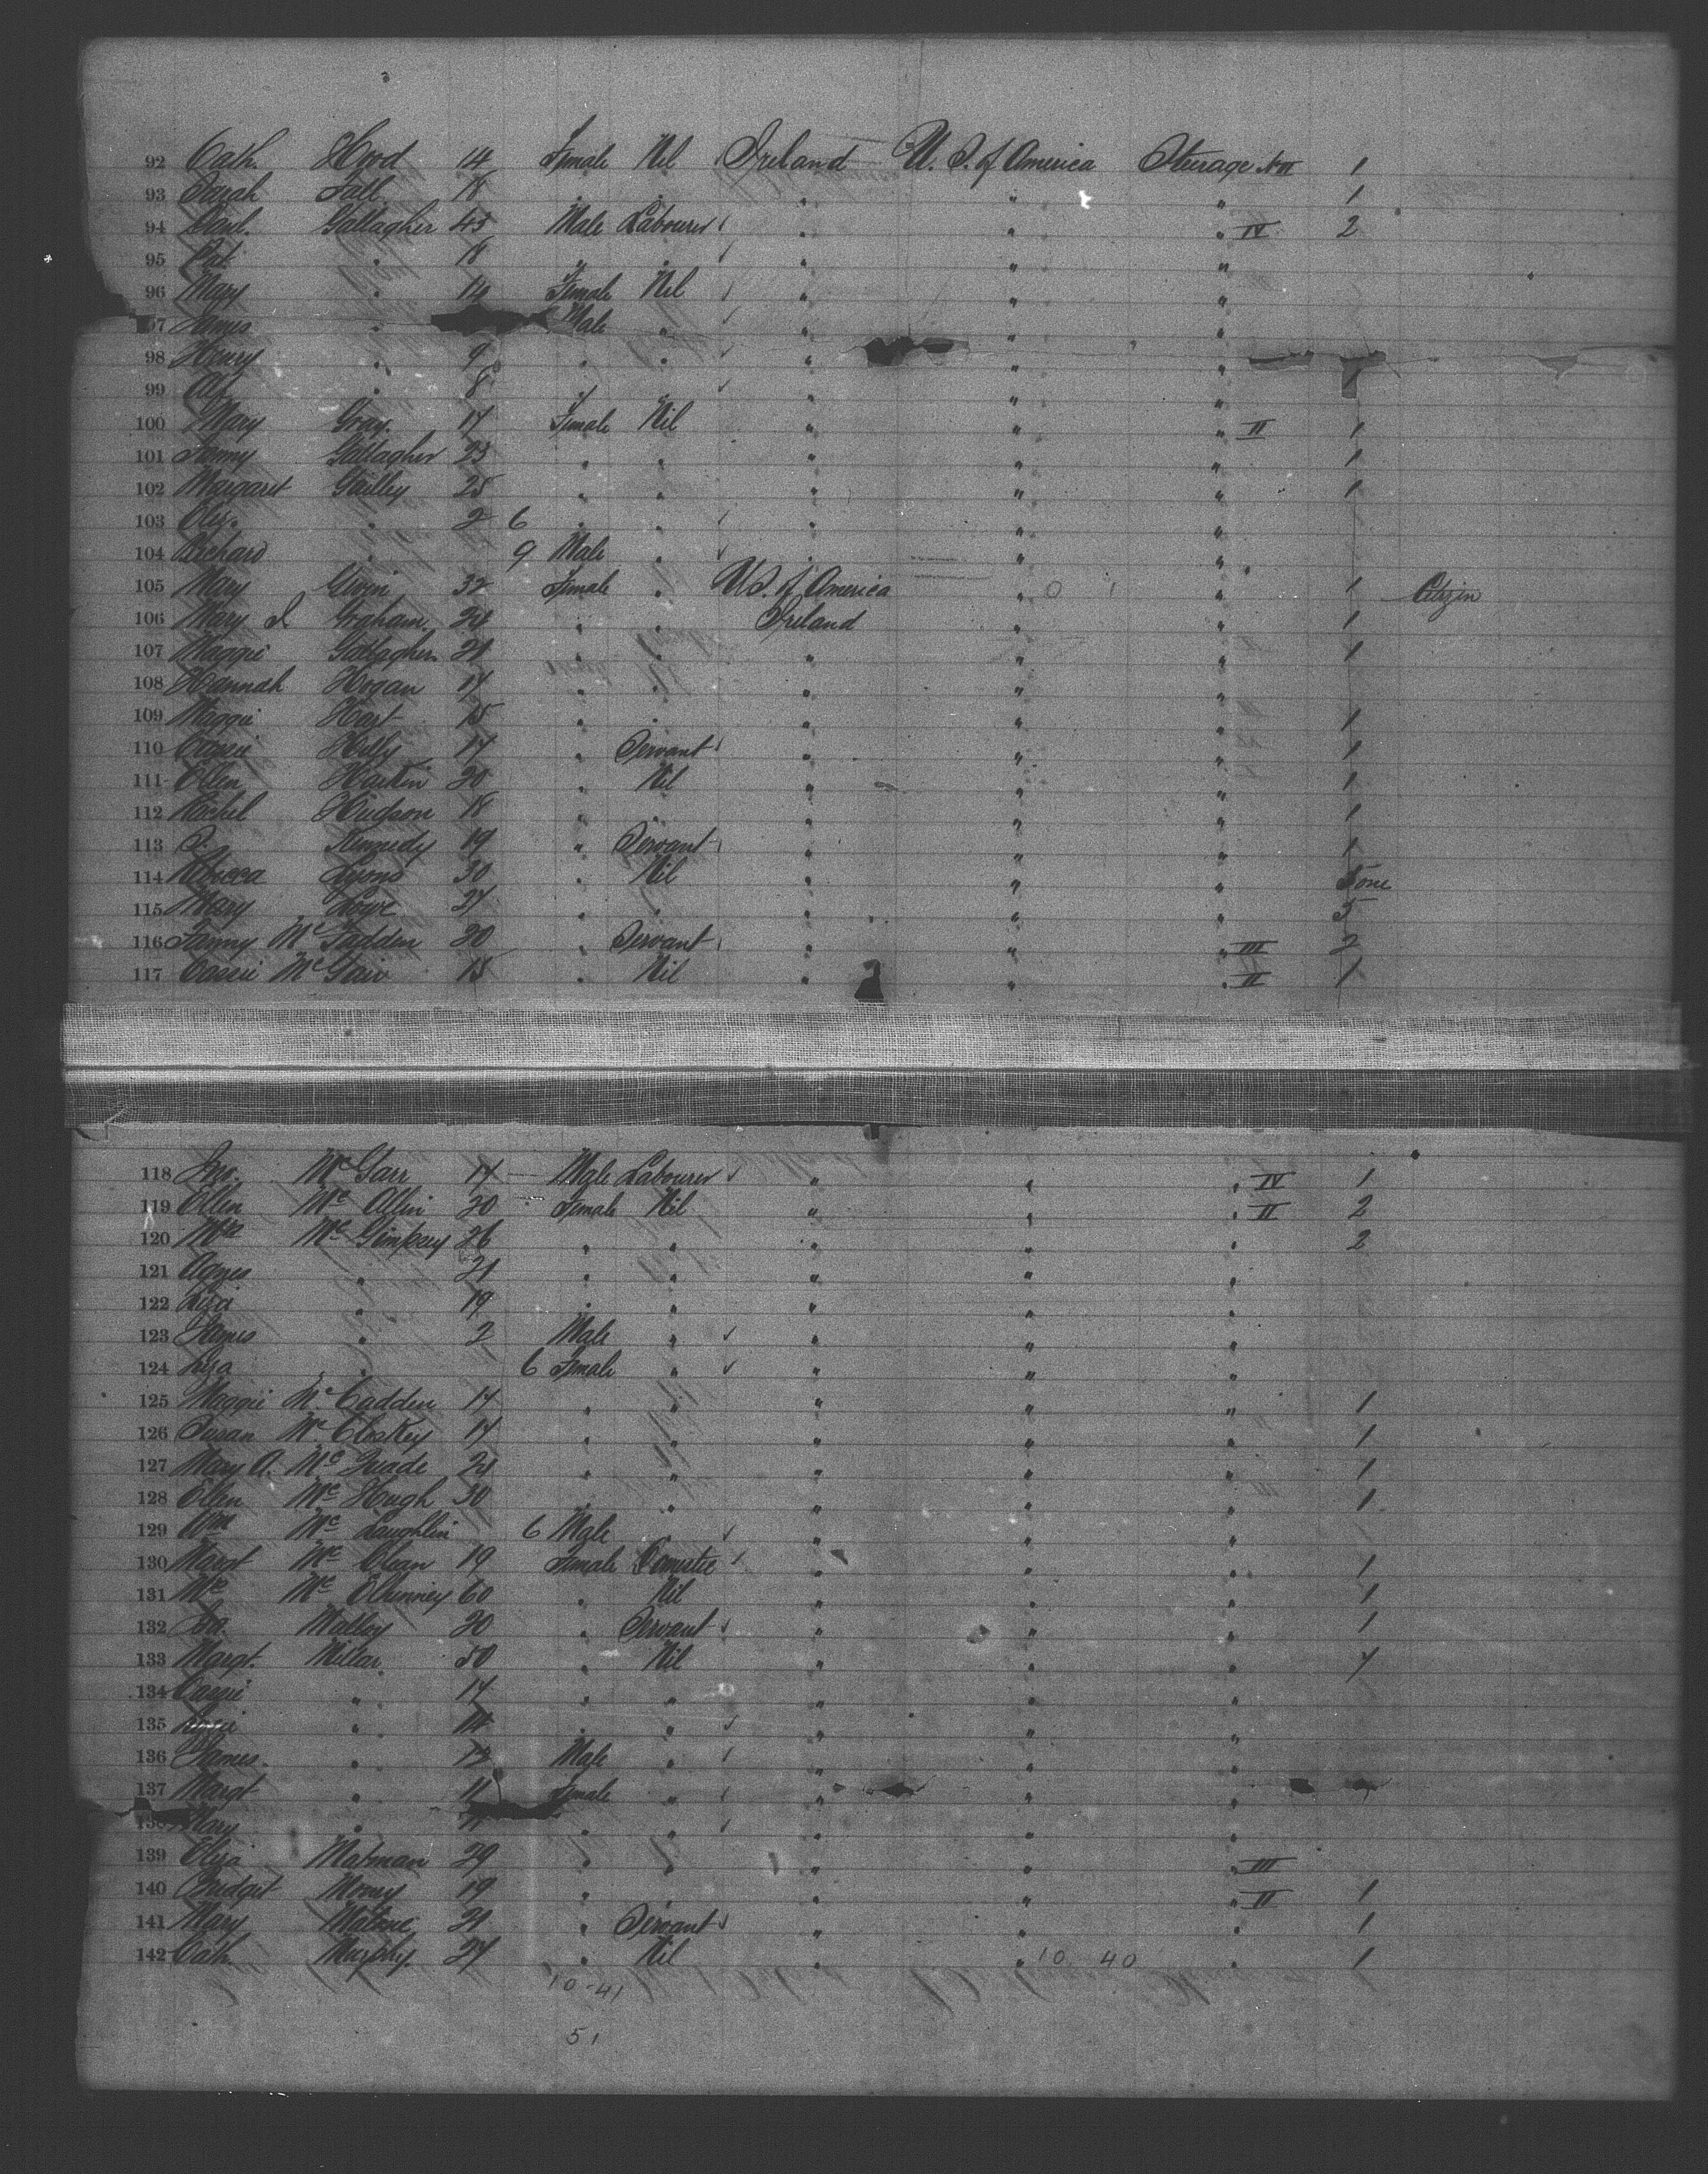 92 Cath. Hood 14 Female Nil Ireland U. S. of America Steerage No II 1
93 Sarah Fall 18 " " " 1
94 Danl. Gallagher 45 Male Labourer " " " IV 2
95 Pat " 18 " " " " "
96 Mary " 14 Female Nil " " "
97 James " Male " " " "
98 Henry " 9 " " " " "
99 " 8 " " " " "
100 Mary Gray. 17 Female Nil " " " II 1
101 Fanny Gallagher 23 " " " " " 1
102 Margaret Gailey 25 " " " " " 1
103 " 2 6 " " " " "
104 Richard " 9 Male " " " "
105 Mary Givin 32 Female " U S. of America " " 1 Citizen
106 Mary J. Graham. 24 " " Ireland " " 1
107 Maggie Gallagher. 21 " " " " " 1
108 Hannah Hogan 17 " " " " "
109 Maggie Hart 15 " " " " " 1
110 Cassie Helly 17 " Servant " " " 1
111 Ellen Harkin 20 " Nil " " " 1
112 Rachel Hudson 18 " " " " 1
113 S. Kennedy 19 " Servant " " " 1
114 Rebecca Lyons 30 " Nil " " " one
115 Mary Lowe 27 " " " " " 5
116 Fanny Mc Fadden 20 " Servant " " " III 2
117 Cassie Mc Gair 15 " Nil " " " II 1
118 Jno. Mc Garr 17 Male Labourer " " " IV 1
119 Ellen Mc Allin 20 Female Nil " " " II 2
120 Mrs Mc Gimpsey 26 " " " " " 2
121 Agnes " 21 " " " " "
122 " 19 " " " " "
123 James " 2 Male " " " "
124 Liza " 6 Female " " " "
125 Maggie Mc Cadden 17 " " " " " 1
126 Susan Mc Closkey 17 " " " " " 1
127 Mary A. Mc Quade 24 " " " " " 1
128 Ellen Mc Hugh 30 " " " " " 1
129 Wm Mc Laughlin 6 Male " " "
130 Margt Mc Clean 19 Female Domestic " " " 1
131 Mc 60 " Nil " " " 1
132 Malloy 20 " Servant " " " 1
133 Margt. Millar 50 " Nil " " " 7
134 Cassie " 17 " " " " "
135 Lizzie " 14 " " " " "
136 James. " 13 Male " " " "
137 Margt " 11 Female " " " "
138 Mary " " " " " "
139 Eliza Matman 29 " " " " " III
140 Bridget Mooney 19 " " " " II 1
141 Mary Malone 21 " Servant " " " 1
142 Cath. Murphy. 27 " Nil " " 10 40 " 1
10-41
51